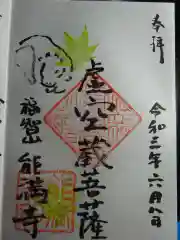 奉拝
令和三年六月九日
虚空蔵菩薩
福智山 能満寺